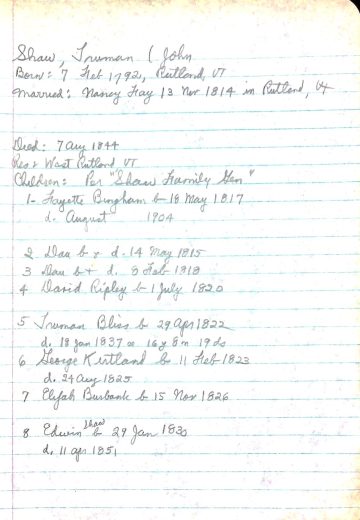 Shaw, Truman ( John
Born: 7 Feb 1792, Rutland, VT
Married: Nancy Fay 13 Nov 1814 in Rutland, Vt
Died: 7 Aug 1844
Res: West Rutland VT
Children: Per "Shaw Family Gen"
1- Fayette Bingham b 18 May 1817
d. August 1904
2 Dau b & d. 14 May 1815
3 Dau b + d. 8 Feb 1818
4 David Ripley b 1 July 1820
5 Truman Bliss b 29 Apr 1822
d. 18 Jan 1837 ae 16y 8m 19ds
6 George Kirtland b 11 Feb 1823
d. 24 Aug 1825
7 Elijah Burbank b 15 Nov 1826
8 Edwin Shaw b 29 Jan 1830
d. 11 Apr 1851